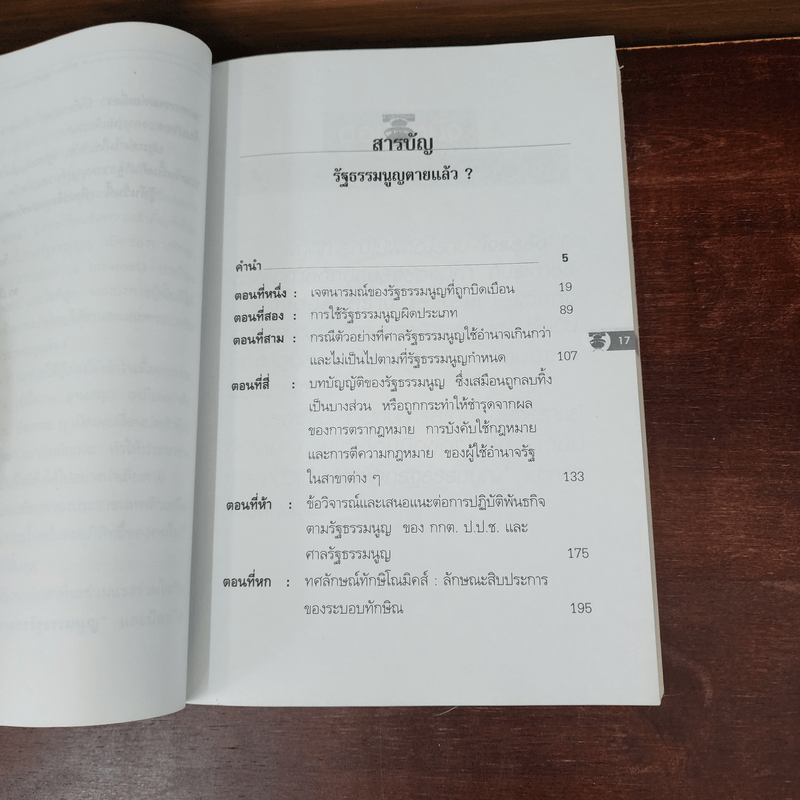 สารบัญ
รัฐธรรมนูญตายแล้ว ?
คำนำ 5
ตอนที่หนึ่ง : เจตนารมณ์ของรัฐธรรมนูญที่ถูกบิดเบือน 19
ตอนที่สอง : การใช้รัฐธรรมนูญผิดประเภท 89
ตอนที่สาม : กรณีตัวอย่างที่ศาลรัฐธรรมนูญใช้อำนาจเกินกว่า
และไม่เป็นไปตามที่รัฐธรรมนูญกำหนด 107
17
ตอนที่สี่ : บทบัญญัติของรัฐธรรมนูญ ซึ่งเสมือนถูกลบทิ้ง
เป็นบางส่วน หรือถูกกระทำให้ชำรุดจากผล
ของการตรากฎหมาย การบังคับใช้กฎหมาย
และการตีความกฎหมาย ของผู้ใช้อำนาจรัฐ
ในสาขาต่าง ๆ 133
ตอนที่ห้า : ข้อวิจารณ์และเสนอแนะต่อการปฏิบัติพันธกิจ
ตามรัฐธรรมนูญ ของ กกต. ป.ป.ช. และ
ศาลรัฐธรรมนูญ 175
ตอนที่หก : ทศลักษณ์ทักษิโณมิคส์ : ลักษณะสิบประการ
ของระบอบทักษิณ 195